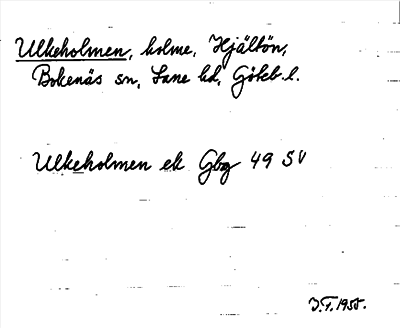 Ulkeholmen, holme, Hjältön,
Bokenäs sn, Lane hd, Göteb. l.
Ulkeholmen ek Gbg 49 SV
J.F. 1955.